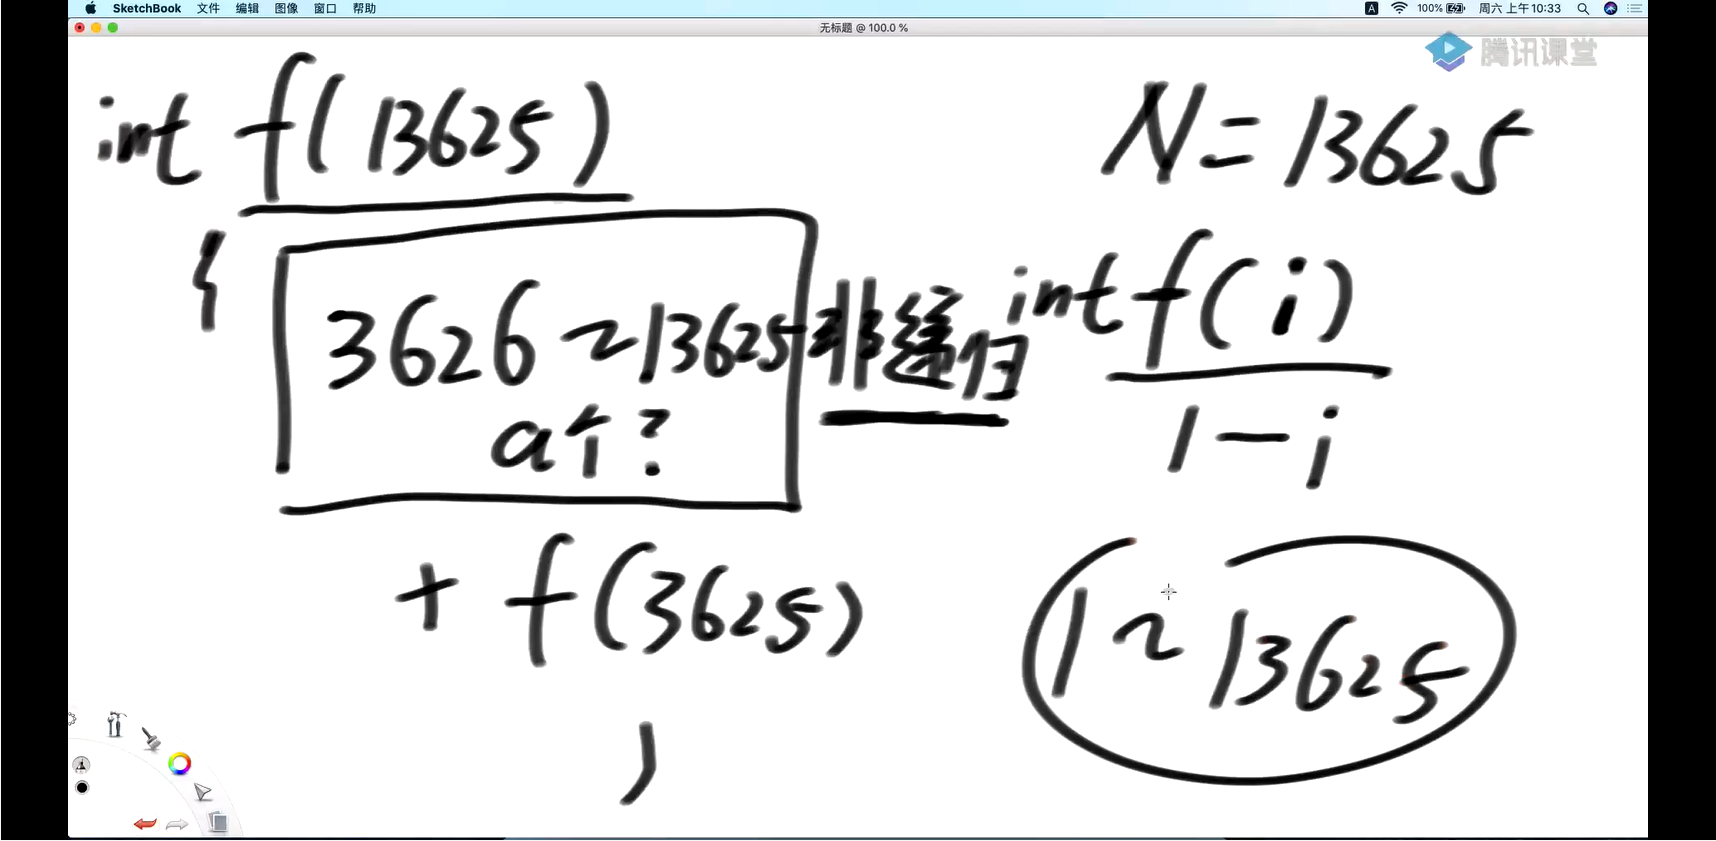 SketchBook 文件 编辑 图像 窗口 帮助
A 100% 周六上午10:33
无标题 @ 100.0 %
腾讯课堂
int f(13625)
{
3626~13625
a个?
非递归
+ f(3625)
N=13625
int f(i)
1-i
1~13625